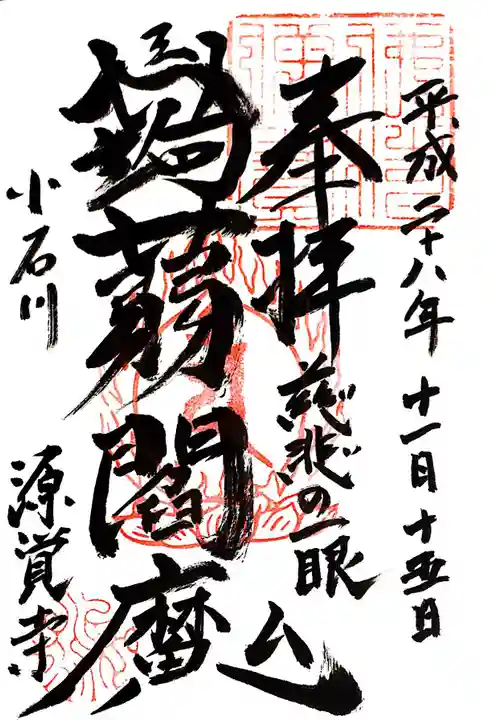 平成二十八年十一月十五日
奉拝 慈悲の一眼
蒟蒻閻魔
小石川 源覚寺